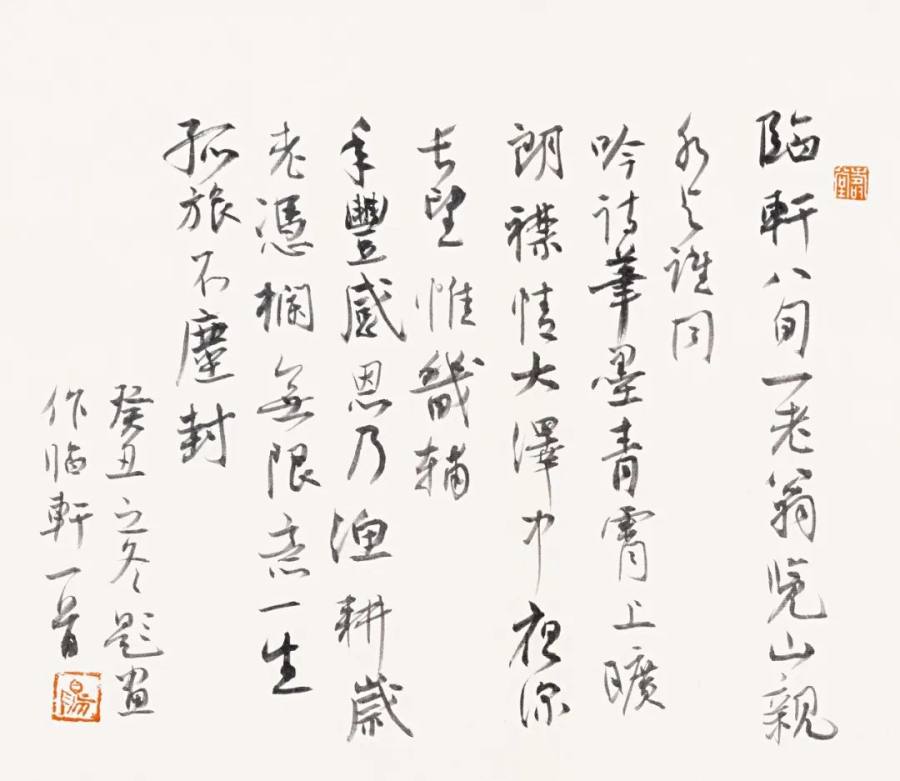 臨軒八旬一老翁览山親
水与誰同
吟詩筆墨青霄上曠
朗襟情大澤中夜深
长望惟畿辅
年豐感恩乃漁耕歲
老憑欄無限意一生
孤旅不塵封
癸丑之冬题画
作臨軒一首